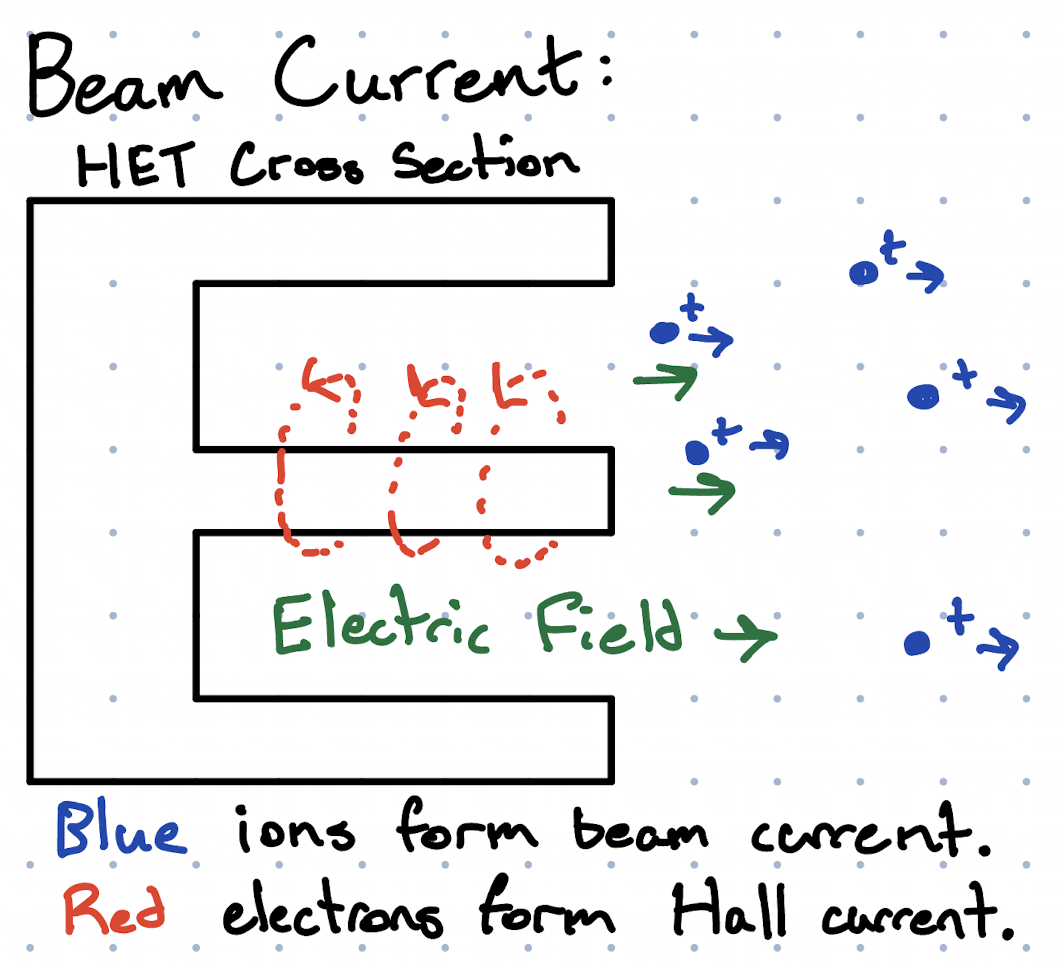 Beam Current:
HET Cross Section
+
+
+
+
Electric Field →
+
Blue ions form beam current.
Red electrons form Hall current.